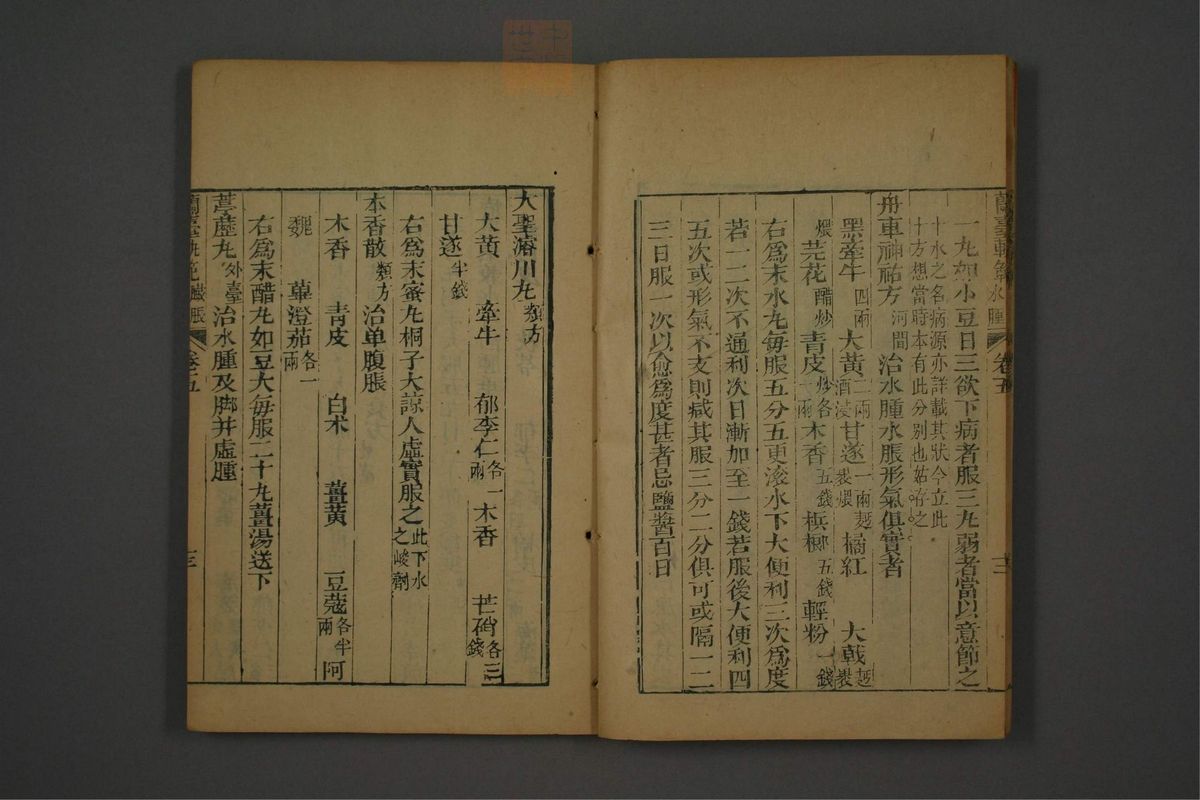 蘭臺軌範水腫 卷五 三
一丸如小豆日三欲下病者服三丸弱者當以意節之
十水之名病源亦詳載其狀今立此
十方想當時本有此分別也姑存之
舟車神祐方河間治水腫水脹形氣俱實者
黑牽牛四兩 大黃二兩酒浸 甘遂一兩麪裹煨 橘紅 大戟麪裹
煨 芫花醋炒 青皮炒各一兩 木香五錢 檳榔五錢 輕粉一錢
右為末水丸每服五分五更滾水下大便利三次為度
若一二次不通利次日漸加至一錢若服後大便利四
五次或形氣不支則减其服三分二分俱可或隔一二
三日服一次以愈為度甚者忌鹽醬百日
大聖濬川丸類方
大黃 牽牛 郁李仁各一兩 木香 芒硝各三錢
甘遂半錢
右為末蜜丸桐子大諒人虛實服之此下水之峻劑
木香散類方治单腹脹
木香 青皮 白术 薑黃 豆蔻各半兩 阿
魏 蓽澄茄各一兩
右為末醋丸如豆大每服二十丸薑湯送下
葶藶丸外臺治水腫及脚并虛腫
蘭臺軌範臌脹 卷五 三